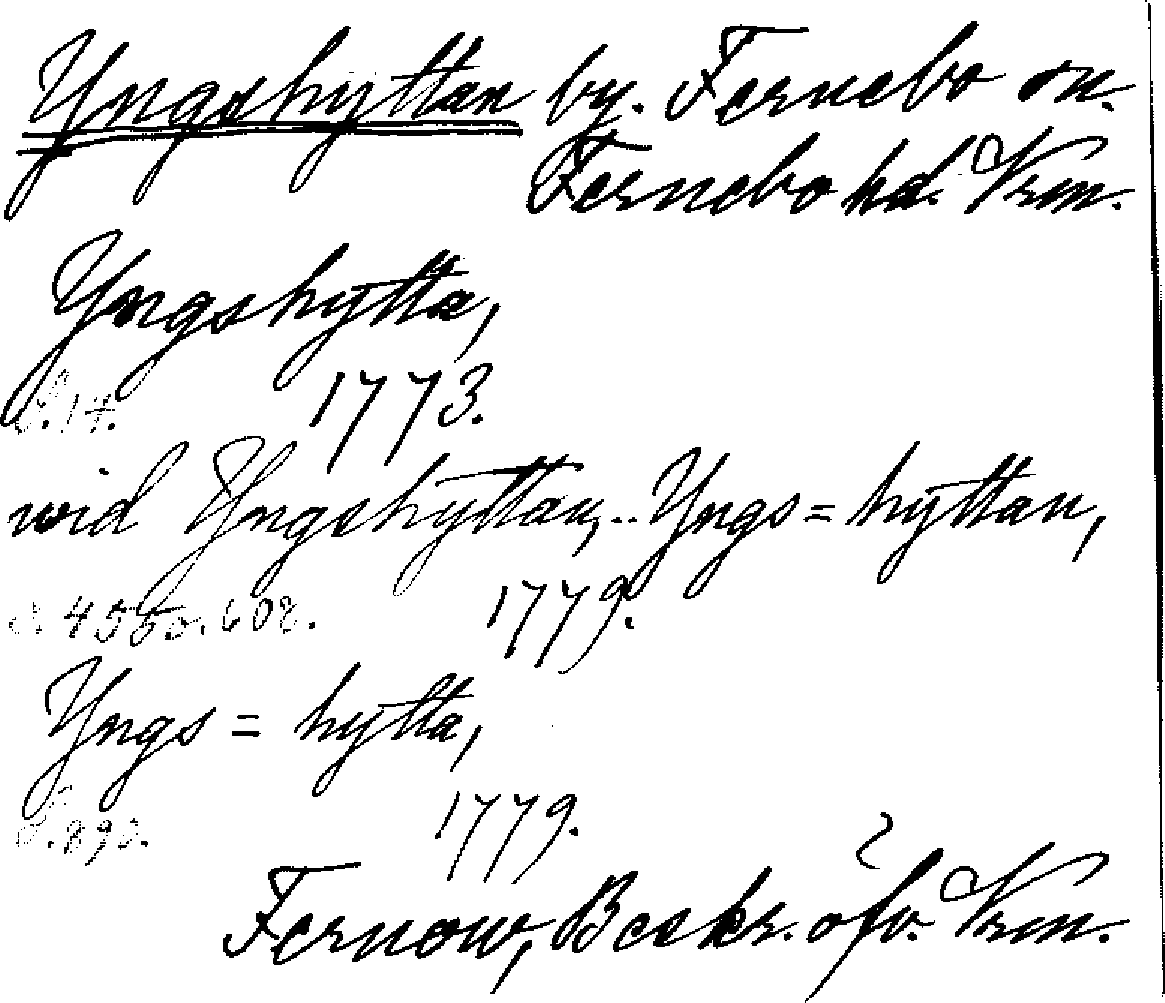 Yngshyttan by. Fernebo sn.
Fernebo hd. Vrm.
Yngshytta,
s. 14. 1773.
wid Yngshyttan,.. Yngs=hyttan,
s. 455 o. 602. 1779.
Yngs=hytta,
1779.
Fernow, Beskr. öfv. Vrm.